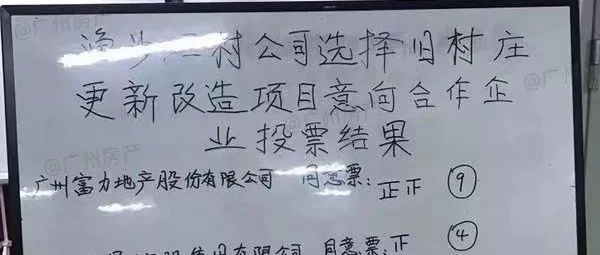 村公司选择旧村庄
更新改造项目意向合作企
业投票结果
广州富力地产股份有限公司 同意票: 正正 ⑨
股份有限公司 同意票: 正 ④
@广州房产
@广州房产
@广州房产